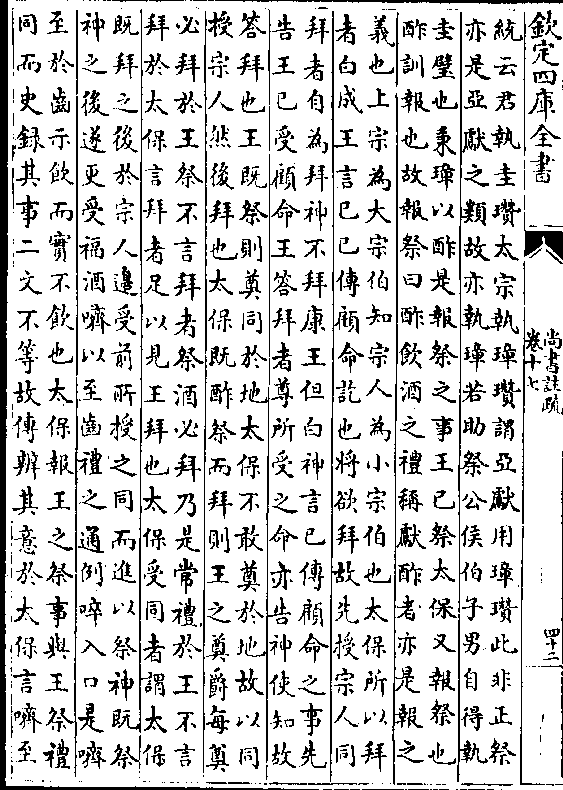 欽定四庫全書
尚書註疏
卷十七
四十二
統云君執圭瓚太宗執璋瓚謂亞獻用璋瓚此非正祭
亦是亞獻之類故亦執璋若助祭公侯伯子男自得執
圭璧也秉璋以酢是報祭之事王已祭太保又報祭也
酢訓報也故報祭曰酢飲酒之禮稱獻酢者亦是報之
義也上宗為大宗伯知宗人為小宗伯也太保所以拜
者白成王言已已傳顧命訖也將欲拜故先授宗人同
拜者自為拜神不拜康王但白神言已傳顧命之事先
告王已受顧命王答拜者尊所受之命亦告神使知故
答拜也王既祭則奠同於地太保不敢奠於地故以同
授宗人然後拜也太保既酢祭而拜則王之奠爵每奠
必拜於王祭不言拜者祭酒必拜乃是常禮於王不言
拜於太保言拜者足以見王拜也太保受同者謂太保
既拜之後於宗人邊受前所授之同而進以祭神既祭
神之後遂更受福酒嚌以至齒禮之通例啐入口是嚌
至於齒示飲而實不飲也太保報王之祭事與王祭禮
同而史録其事二文不等故傳辨其意於太保言嚌至